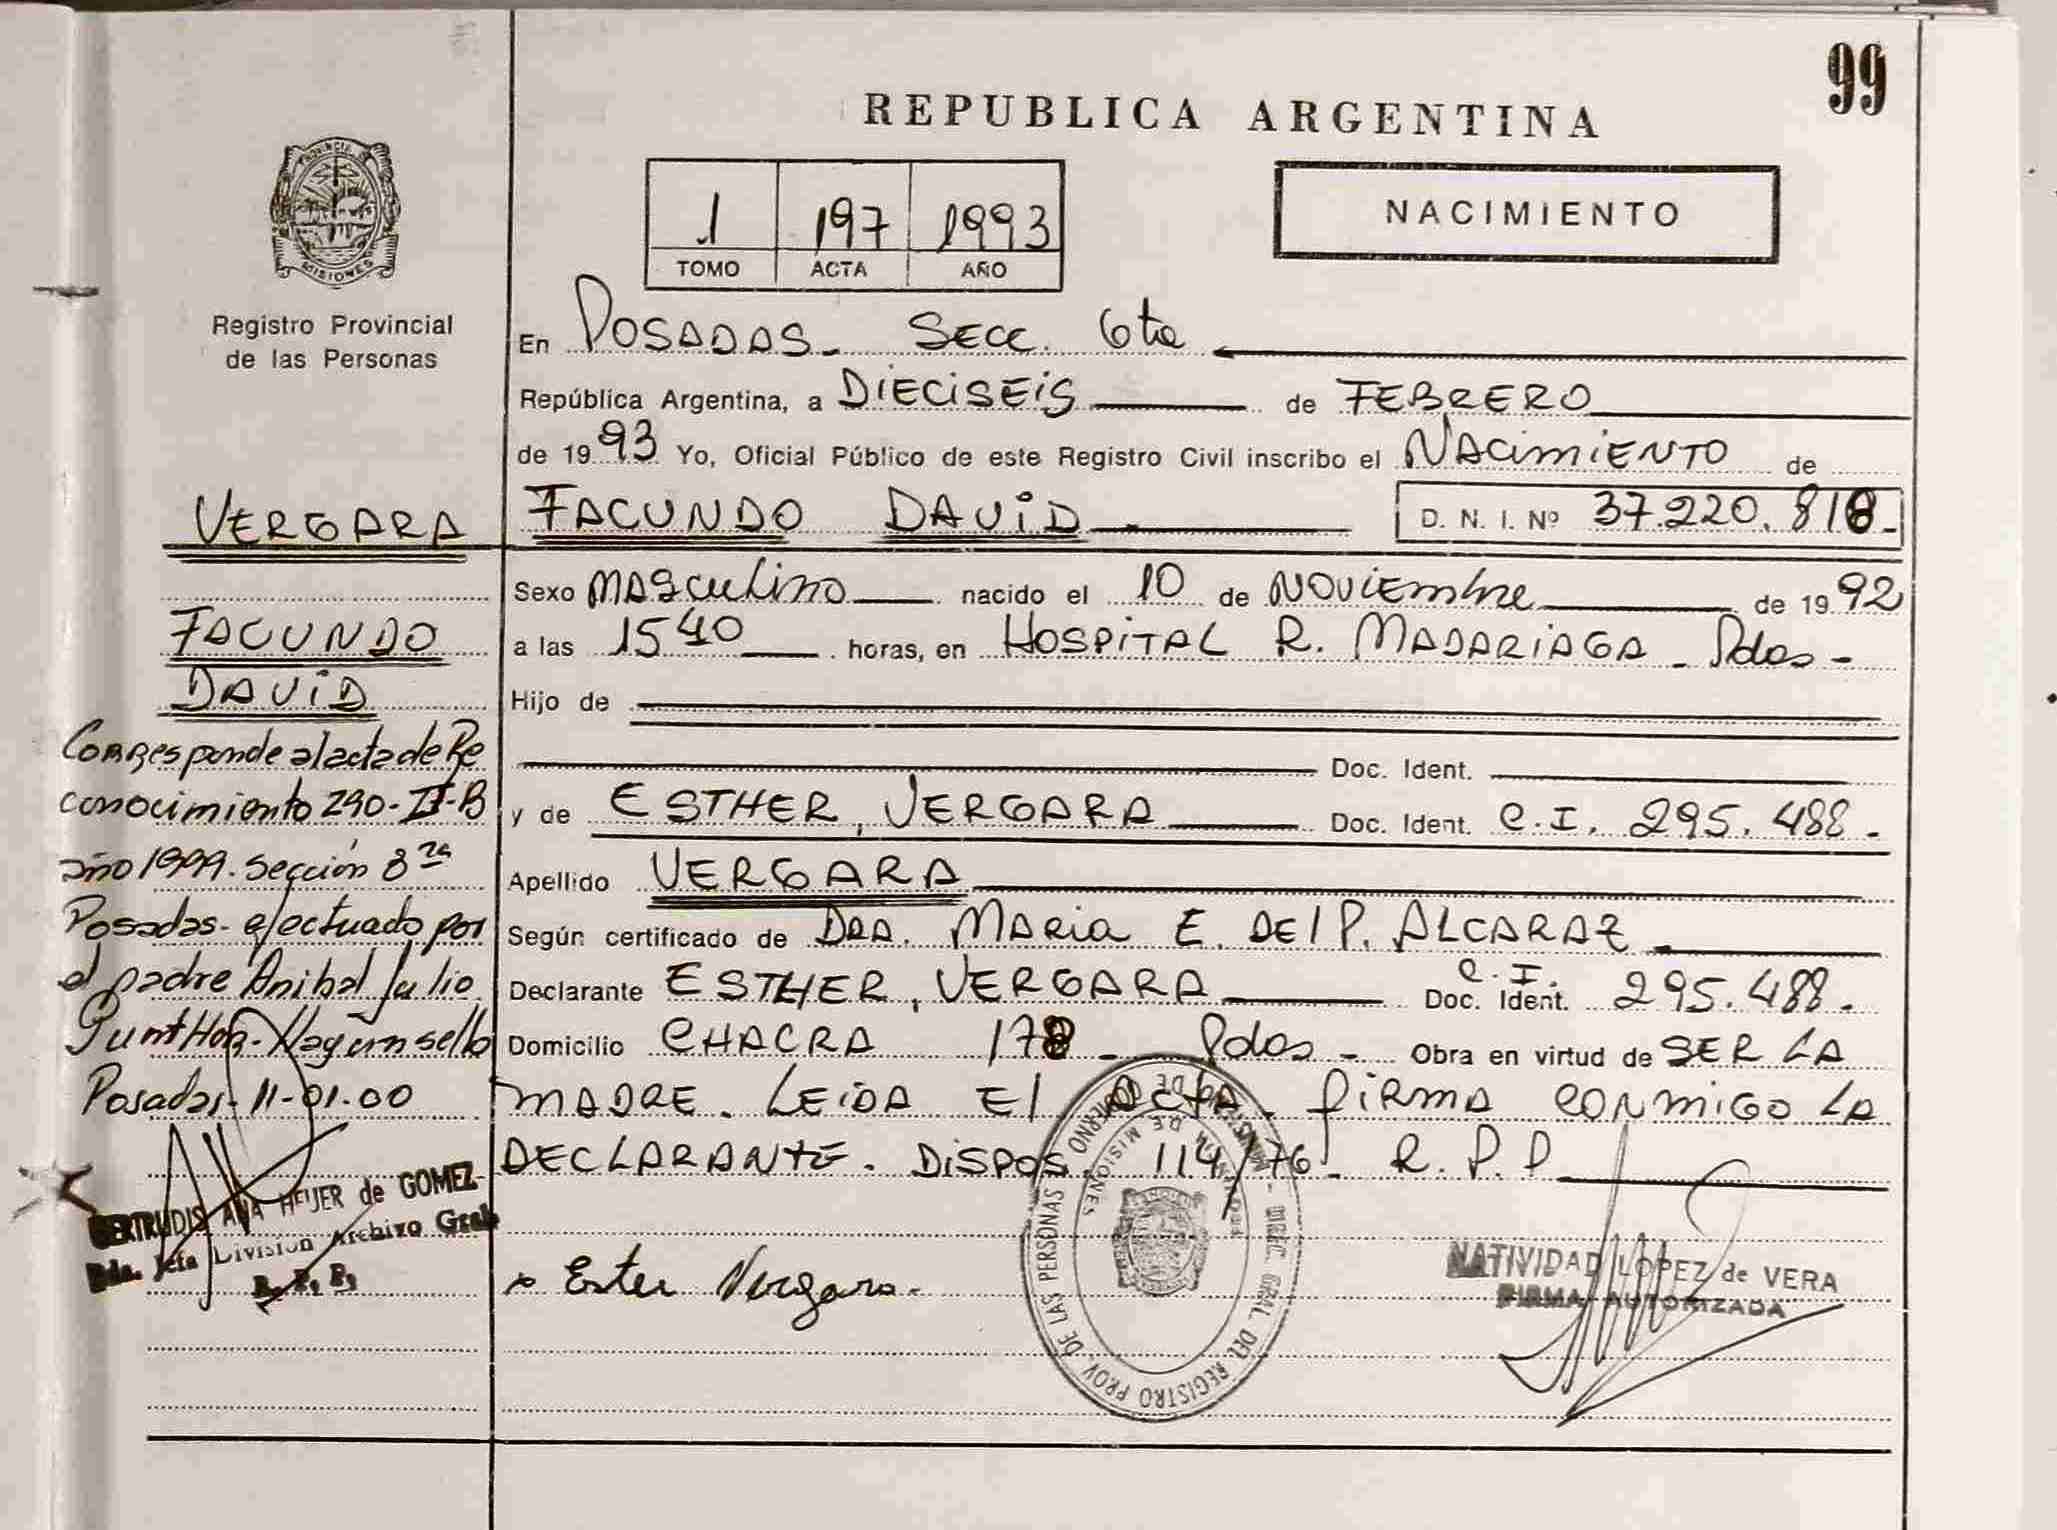 99
REPUBLICA ARGENTINA
1 197 1993
TOMO ACTA AÑO
NACIMIENTO
PROVINCIA DE
MISIONES
Registro Provincial
de las Personas
En POSADAS - SECC. 6ta
República Argentina, a DIECISEIS de FEBRERO
de 1993 Yo, Oficial Público de este Registro Civil inscribo el NACIMIENTO de
FACUNDO DAVID D. N. I. Nº 37.220.818-
Sexo MASCULINO nacido el 10 de NOVIEMBRE de 1992
a las 1540 horas, en HOSPITAL R. MADARIAGA - Pdas -
Hijo de
Doc. Ident.
y de ESTHER, VERGARA Doc. Ident. C.I. 295.488.
Apellido VERGARA
Según certificado de DRA. MARIA E. DEl P. ALCARAZ
Declarante ESTHER, VERGARA Doc. Ident. C.I. 295.488.
Domicilio CHACRA 178 - Pdas - Obra en virtud de SER LA
MADRE. LEIDA El ACTA - FIRMA CONMIGO LA
DECLARANTE. DISPOS. 114/76 - R.P.P
x Ester Vergara.
NATIVIDAD LOPEZ de VERA
FIRMA AUTORIZADA
DIREC. GRAL. DEL REGISTRO PROV. DE LAS PERSONAS
DE MISIONES
VERGARA
FACUNDO
DAVID
Corresponde al acta de Re
conocimiento 290-II-B
año 1999. Sección 8va
Posadas - efectuado por
el padre Anibal Julio
Posadas, 11-01-00
GERTRUDIS ANA HEIJER de GOMEZ
Jefa División Archivo Gral
R. P. P.